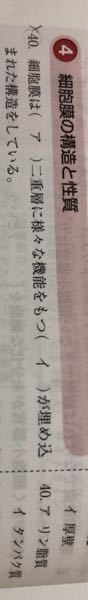 4 細胞膜の構造と性質
40. 細胞膜は( ア )二重層に様々な機能をもつ( イ )が埋め込
まれた構造をしている。
イ 厚壁
40. ア リン脂質
イ タンパク質